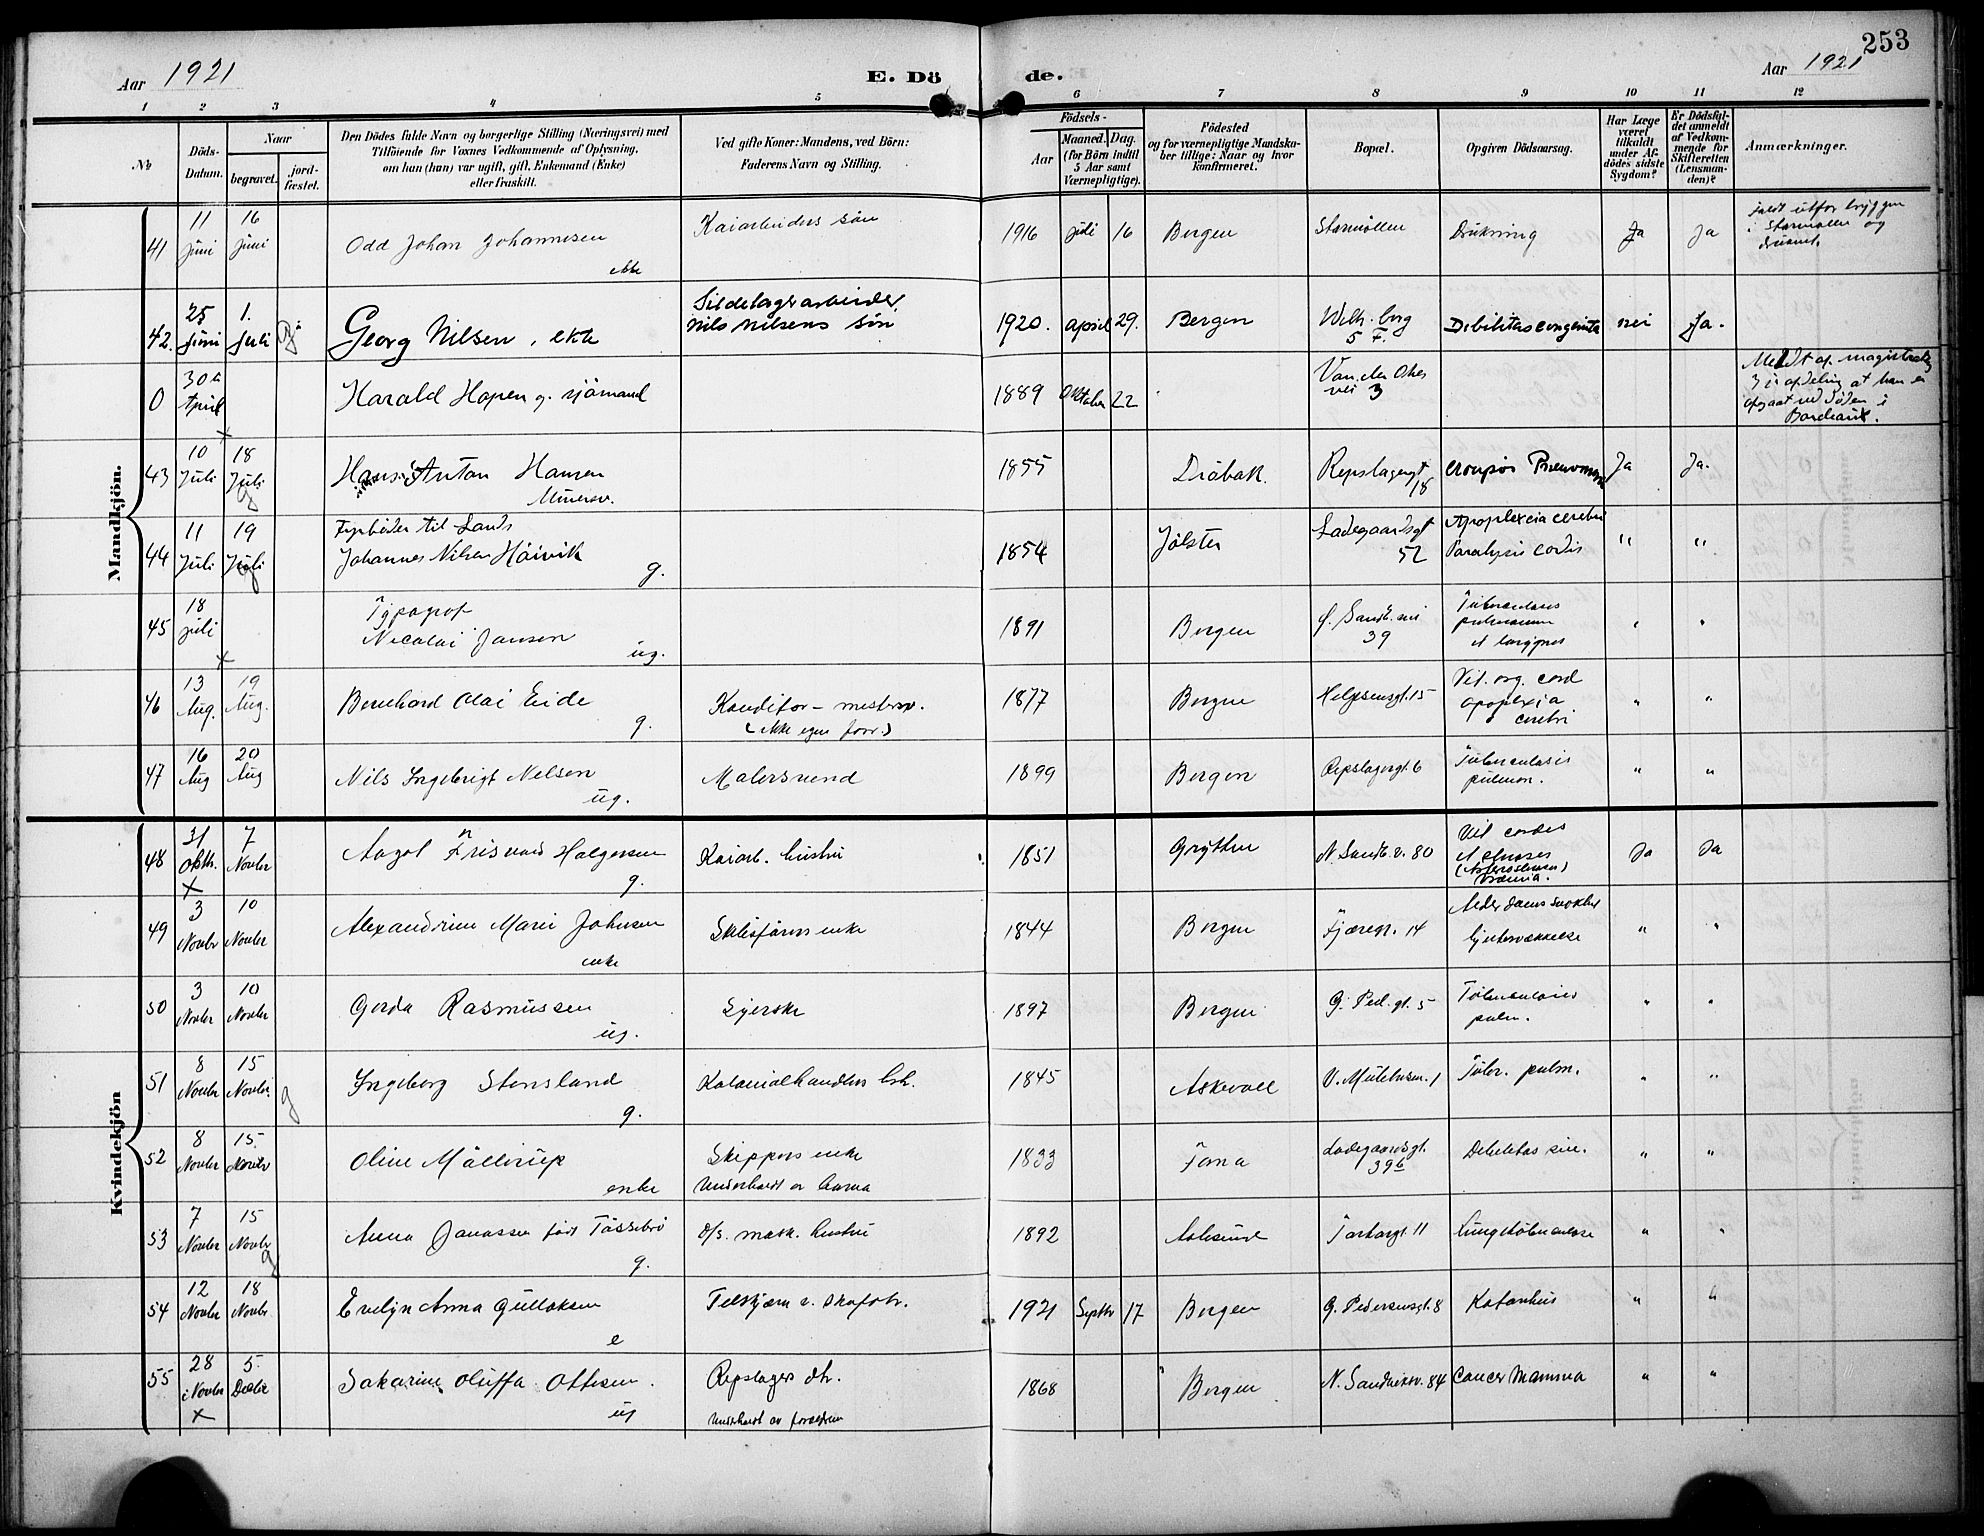 253
Aar 1921
E. Dö
de.
Aar 1921
1 2 3 4 5 6 7 8 9 10 11 12
No
Döds-Datum.
Naar
begravet.
jord-fæstet.
Den Dödes fulde Navn og borgerlige Stilling (Næringsvei) med
Tilföiende for Voxnes Vedkommende af Oplysning,
om han (hun) var ugift, gift, Enkemand (Enke)
eller fraskilt.
Ved gifte Koner: Mandens, ved Börn:
Faderens Navn og Stilling.
Födsels-
Aar
Maaned. Dag.
(for Börn indtil
5 Aar samt
Værnepligtige).
Födested
og for værnepligtige Mandska-
ber tillige: Naar og hvor
konfirmeret.
Bopæl.
Opgiven Dödsaarsag.
Har Læge
været
tilkaldt
under Af-
dödes sidste
Sygdom?
Er Dödsfal-
det anmeldt
af Vedkom-
mende for
Skifteretten
(Lensman-
den)?
Anmærkninger.
Mandkjön.
41 11 Juni 16 Juni Odd Johan Johannesen ekte Kaiarbeiders sön 1916 juli 16 Bergen Störmöllen Drukning Ja Ja faldt utfor bryggen
i Störmöllen og
druknet.
42. 25 juni 1. Juli Georg Nilsen, ekte Sildelagerarbeider
Nils Nilsens sön 1920. april 29. Bergen Welh. borg
5 F. Debilitas congenita nei Ja.
0 30te April Harald Hopen g. sjömand 1889 Oktober 22 Van der Ohes
vei 3 Meldt af magistratens
3je afdeling at han er
omgaat ved döden i
Bordeaux.
43 10 Juli 18 Juli Hans Anton Hansen
Murersv. 1855 Dröbak. Repslagergt
18 croupös Pneumoni Ja Ja.
44 11 Juli 19 Juli Fyrböder til Lands
Johannes Nilsen Höivik
g. 1854 Jölster Ladegaardsgt
52 Apoplexia cerebri
Paralysis cordis " "
45 18 juli Typograf
Nicolai Jansen
ug. 1891 Bergen Ö. Sandv. vei
39 Tuberculosis
pulmonum
et laryngis " "
46 13 Aug. 19 Aug. Bernhard Olai Eide
g. Konditor-mestersv.
(ikke egen forr.) 1877 Bergen Helgesensgt. 15 Vit. org. cord
apoplexia
cerebri " "
47 16 Aug 20 Aug Nils Ingebrigt Nelson
ug. Malersvend 1899 Bergen Repslagergt. 6 Tuberculosis
pulmon. " "
Kvindekjön
48 31 Oktbr. 7 Novbr Aagot Frisvold Halgersen
g. Kaiarb. hustru 1851 Grytten N. Sandv. v. 80 Vit cordis
(Arteriosclerose)
Uræmia. Ja Ja
49 3 Novbr 10 Novbr Alexandrine Marie Johnsen
enke Skibsförers enke 1844 Bergen Fjæregr. 14 Alderdomssvækkelse
hjertesvækkelse " "
50 3 Novbr 10 Novbr Gerda Rasmussen
ug. Syerske 1897 Bergen G. Ped. gt. 5 Tuberculosis
pulm. " "
51 8 Novbr 15 Novbr. Ingeborg Stensland
g. Kolonialhandlers hst. 1845 Askevold V. Mulehusm. 1 Tuber. pulm. " "
52 8 Novbr 15 Novbr Oline Möllerup
enke Skippers enke
Underholdt av barna 1833 Fana Ladegaardsgt.
39b Debilitas sen. " "
53 7 Novbr 15 Novbr Anna Jonassen född Tössebro
g. d/s. mask. hustru 1892 Aalesund Torborgt. 11 Lungetuberculose " "
54 12 Novbr 18 Novbr Evelyn Anna Gulloksen
e Telthjem v. Skafotv. 1921 Septbr 17 Bergen G. Pedersensgt. 8 Katarrhus " "
55 28 Novbr 5. Decbr Sakarine Oluffa Ottesen.
ug Repslagers dtr.
Underholdt av forældrene 1868 Bergen N. Sandviksv. 84 Cancer mamma " "